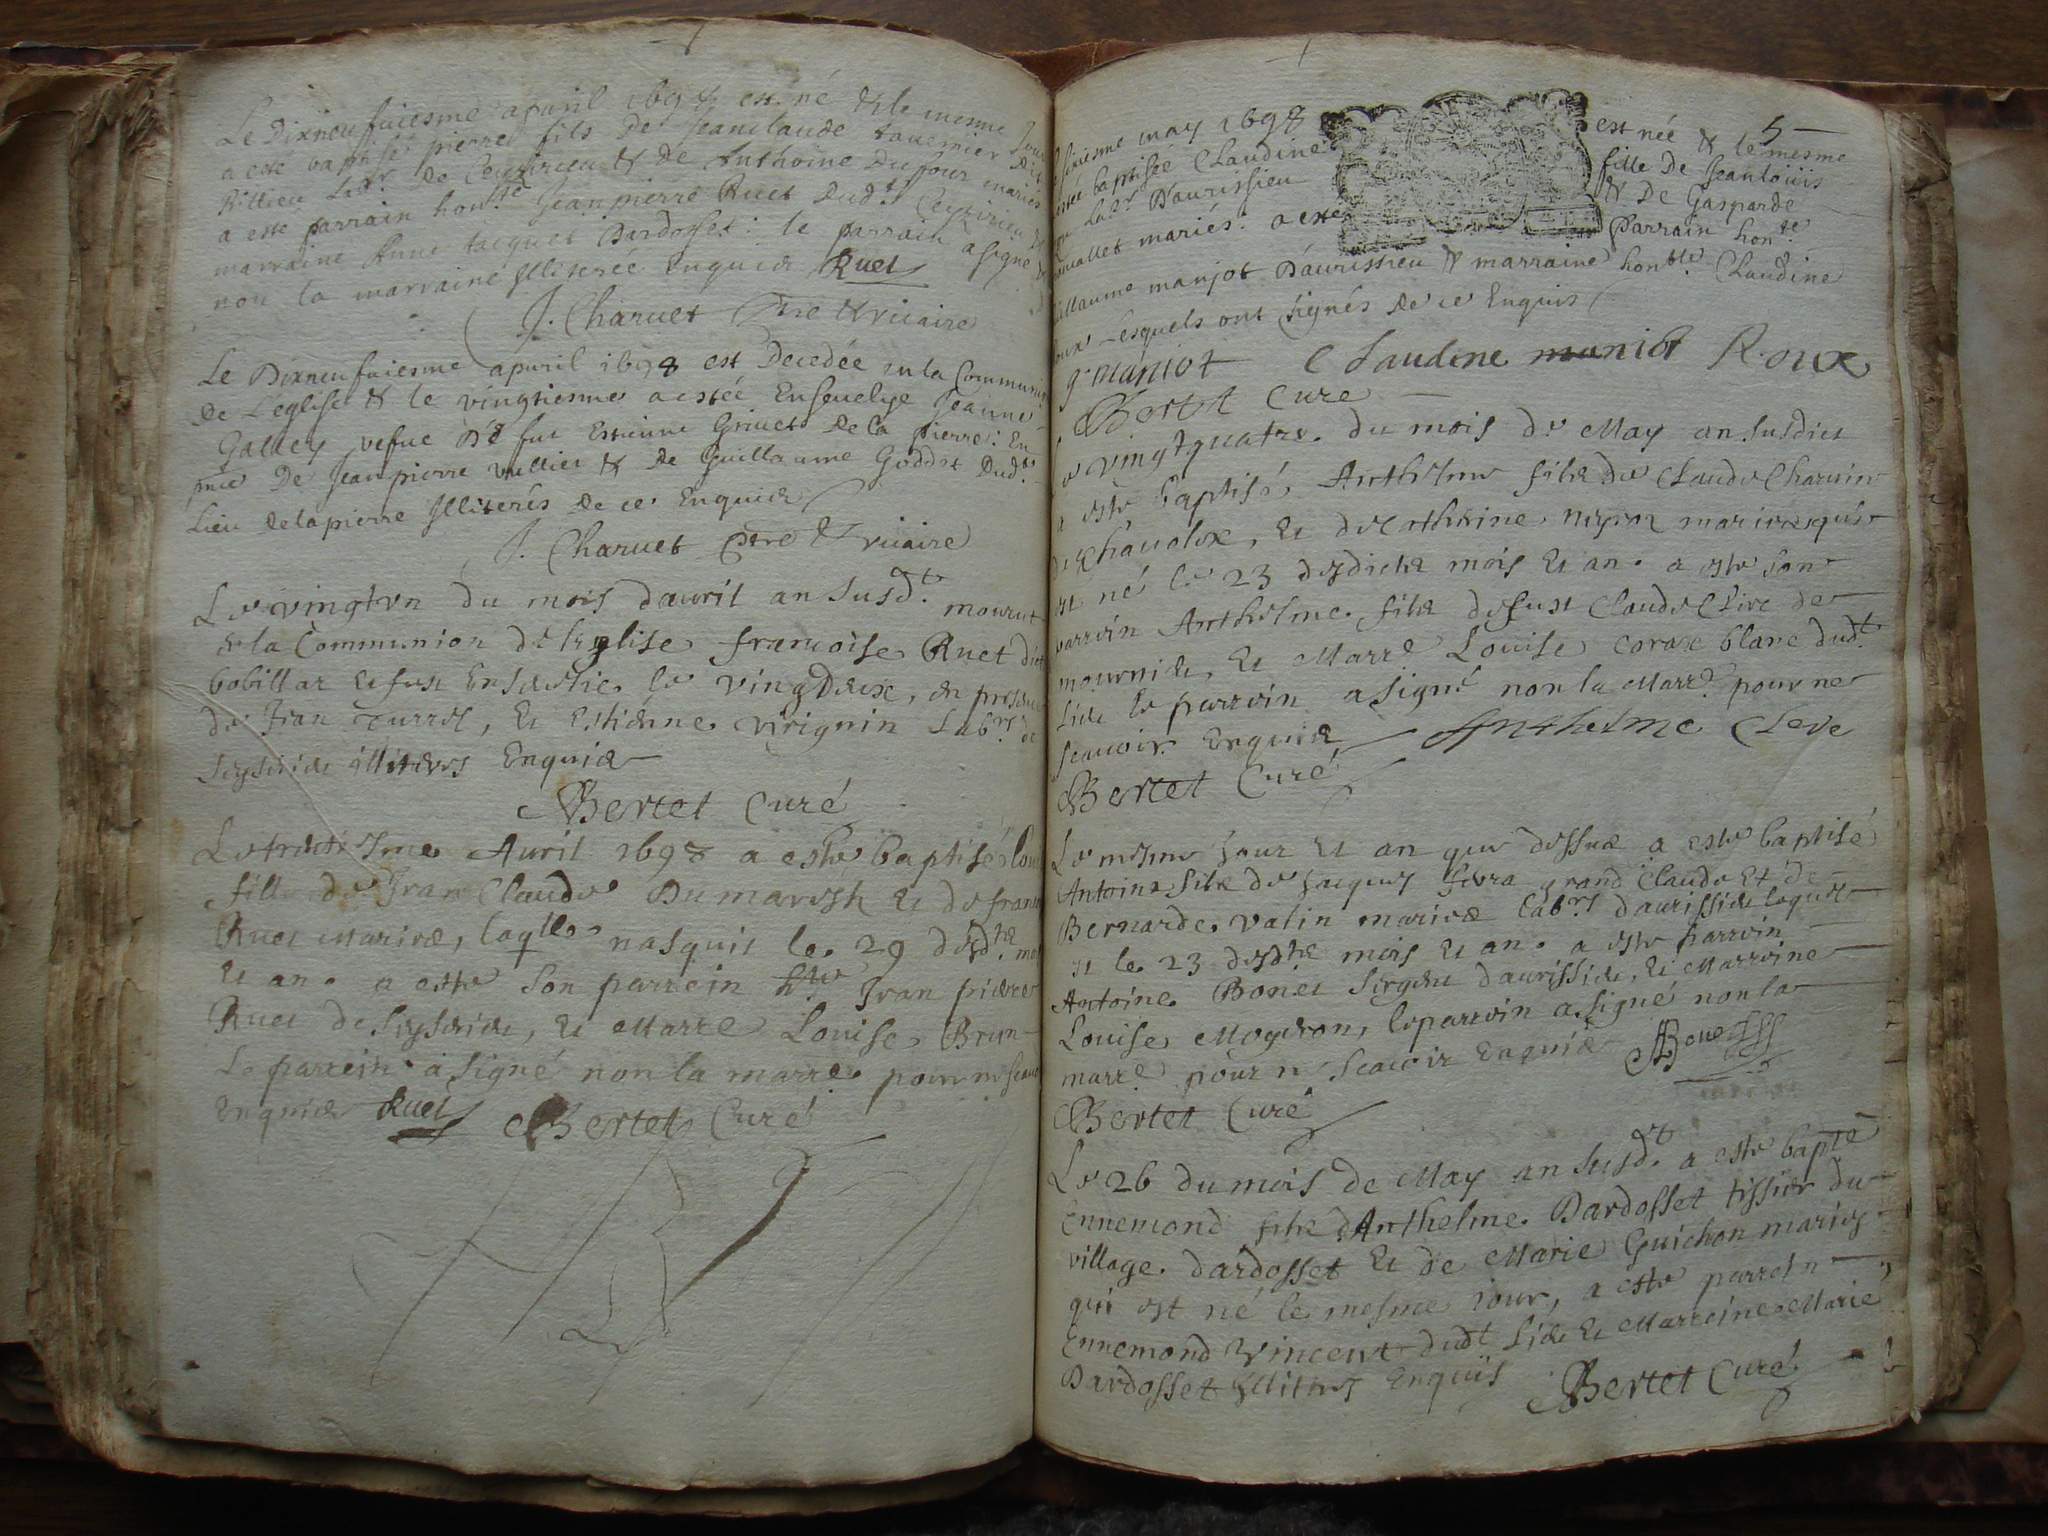 Le Dixneufuiesme apuril 1698 est né & le mesme Jour
a esté baptisé pierre fils De Jeanclaude tauernier Dit
Rittieu Lab.r De Ceyzirieu & De Anthoine Dufour mariés
a esté parrain hon.te Jeanpierre Ruet Dud.t Ceyzirieu &
marraine Anne Jacquet Dardosset: le parrain a signé &
non la marraine Illiteree Enquis Ruet
J. Charuet Ptre & vicaire
Le Dixneufuiesme apuril 1698 est Decedée en la Communion
De L'eglise & le vingtiesme a estée Enseuelye Jeanne
Galley vefue De fut Estienne Griuet De la pierre: En
pnce De Jeanpierre vullier & De Guillaume Goddet Dud.t
Lieu Delapierre Illiterés De ce Enquis
J. Charuet Ptre & vicaire
Le vingtvn du mois dauril an susd.t mourut
en la Communion de leglise francoise Ruet dict
bobillar et fust Enseuelie le vingdeux, en presence
de Jean Curret, et Estienne virignin Lab.rs de
Seyserieu illiteres Enquis
Bertet Curé
Le trentiesme Auril 1698 a este baptisé
fille de Jean Claude Dumaresh et de
Ruet Mariez, laqlle nasquit le 29 desd.ts
et an. a este son parrein h.te Jean pierre
Ruet de Seyserieu, et Marre Louise Brun
Le parrein a signé non la marre. pour ne
Enquis Ruet Bertet Curé
5
may 1698 est née & le mesme
estée baptisée Claudine fille De Jeanlouis
Lab.r D'aurissieu & De Gasparde
mariés. a esté Parrain hon.te
Guillaume manjot D'aurissieu & marraine hon.ble Claudine
Roux Lesquels ont signés De ce Enquis
g. maniot Claudine maniot Roux
Bertet Cure
Le vingtquatre du mois de May an susdict
a este baptisé Anthelme filz de Claude Charuin
de Chauoley, et de Catherine mariez qui
est né le 23 desdictz mois et an. a este son
parrein Anthelme filz de fust Claude Cleve de
et Marre Louise corax blanc dud.t
Lieu le parrein a signé non la Marr.e pour ne
scauoir Enquis Anthelme Cleve
Bertet Curé
Le mesme jour et an que dessus a este baptisé
Antoine filz de jacques feura grand Claude Et de
Bernarde Valin mariez lab.rs d'aurissieu lequel
est le 23 desd.tz mois et an. a este parrein
Antoine Bonet Sergent d'aurissieu, et Marreine
Louise Mogeron, le parrein a signé non la
marre pour n scauoir Enquis Bonet
Bertet Curé
Le 26 du mois de May an susd.t a este bapte
Ennemond filz d'Anthelme Dardosset tissier du
village dardosset et de Marie Guichon mariez
qui est né le mesme iour, a este parrein
Ennemond Vincent dudt Lieu et Marreine Marie
Dardosset Illitres Enquis Bertet Curé